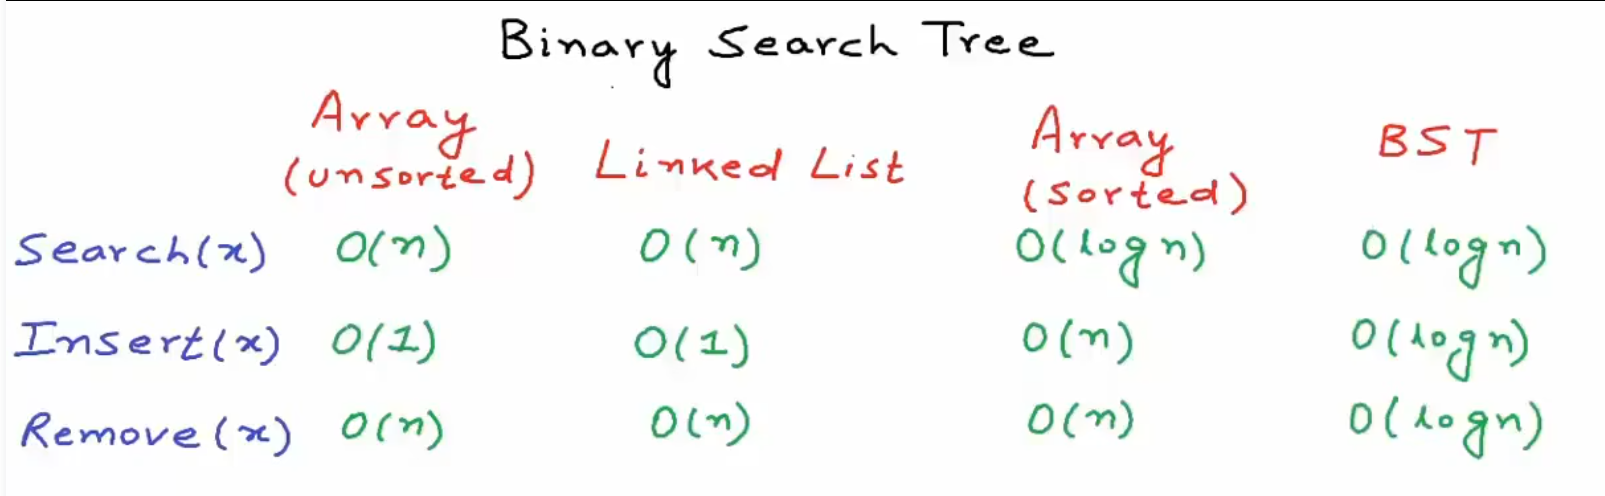 Binary Search Tree
Array (unsorted) Linked List Array (sorted) BST
Search(x) O(n) O(n) O(log n) O(log n)
Insert(x) O(1) O(1) O(n) O(log n)
Remove(x) O(n) O(n) O(n) O(log n)